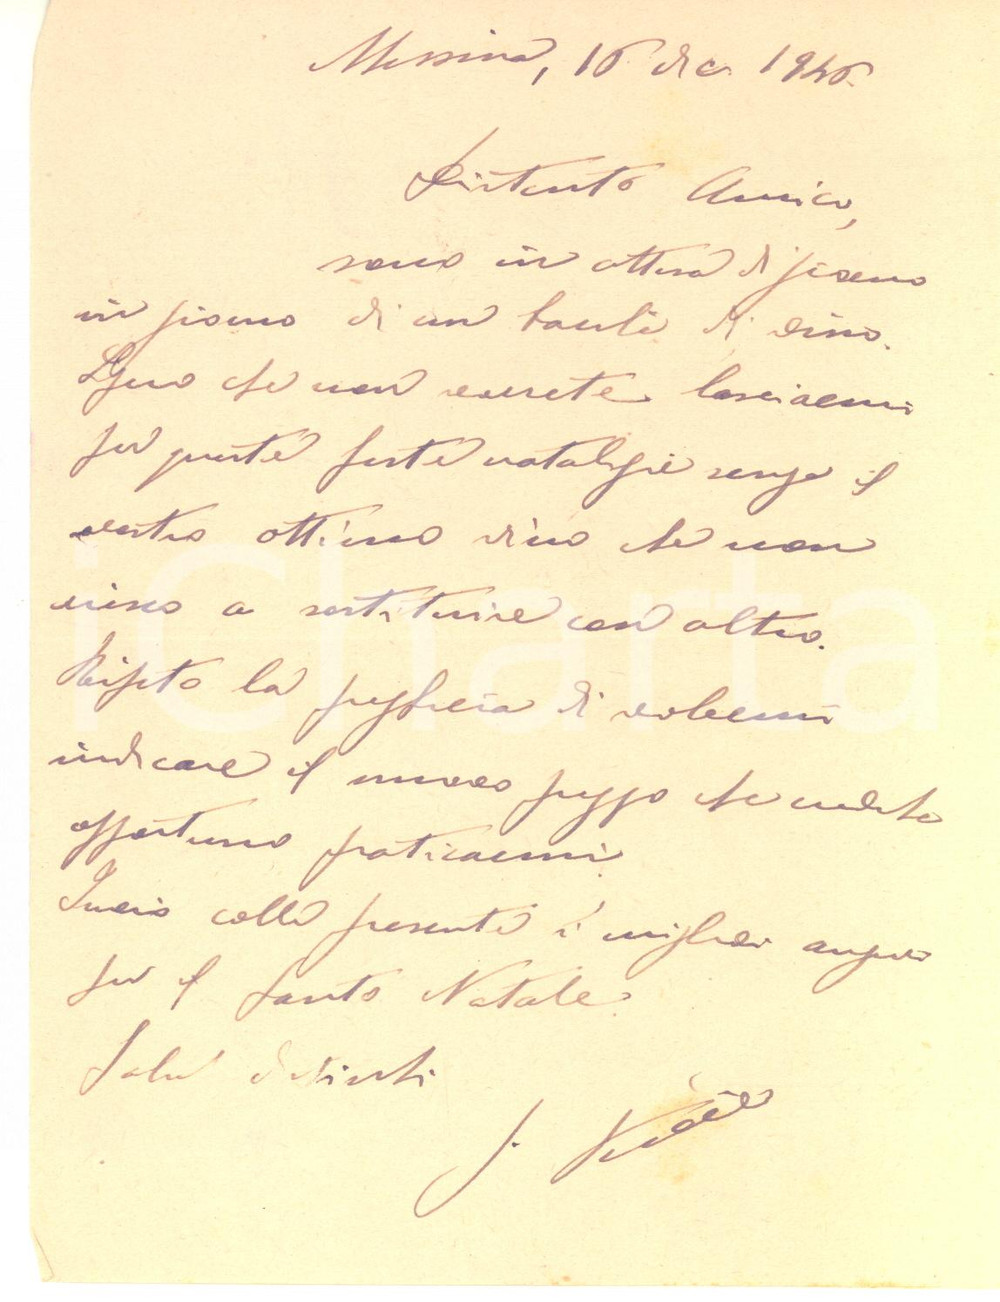 Messina, 16 dic. 1946.
Distinto Amico,
sono in attesa di giorno
in giorno di un barile di vino.
Spero che non vorrete lasciarmi
per queste feste natalizie senza il
vostro ottimo vino che non
riesco a sostituire con altro.
Ripeto la preghiera di volermi
indicare il nuovo prezzo che credete
opportuno praticarmi.
Invio colla presente i migliori auguri
per il Santo Natale.
Saluti distinti
iCharta